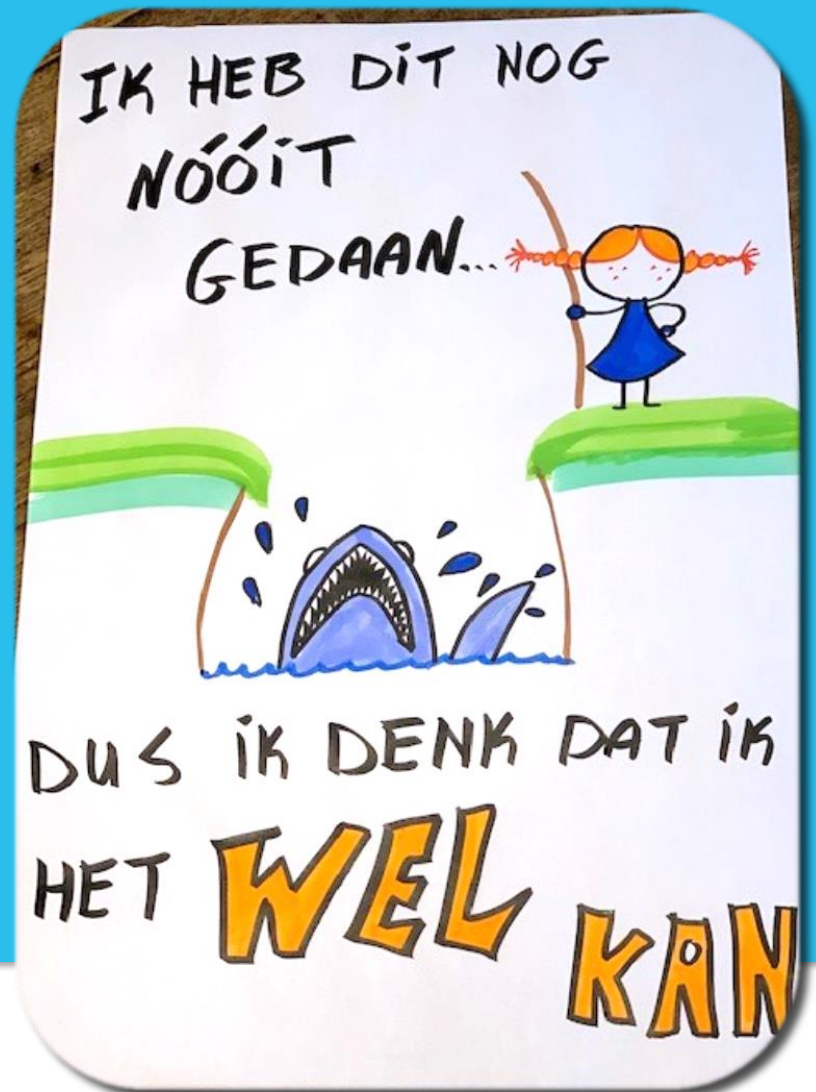 IK HEB DIT NOG
NÓÓIT
GEDAAN...
DUS IK DENK DAT IK
HET WEL
KAN